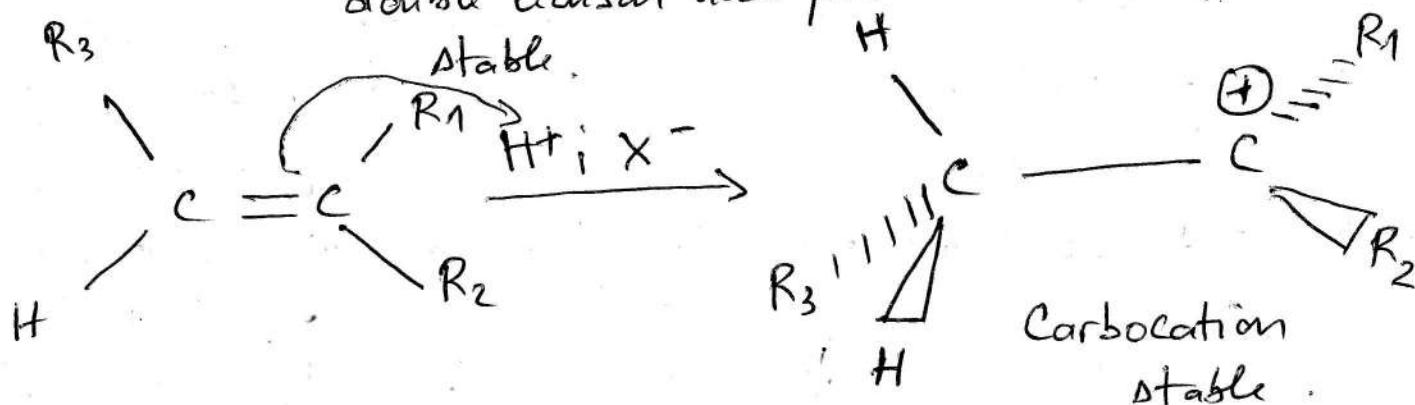 stable.
R3 R1 H+ ; X-
C = C
H R2
H + R1
C C
R3 H R2
Carbocation
stable.